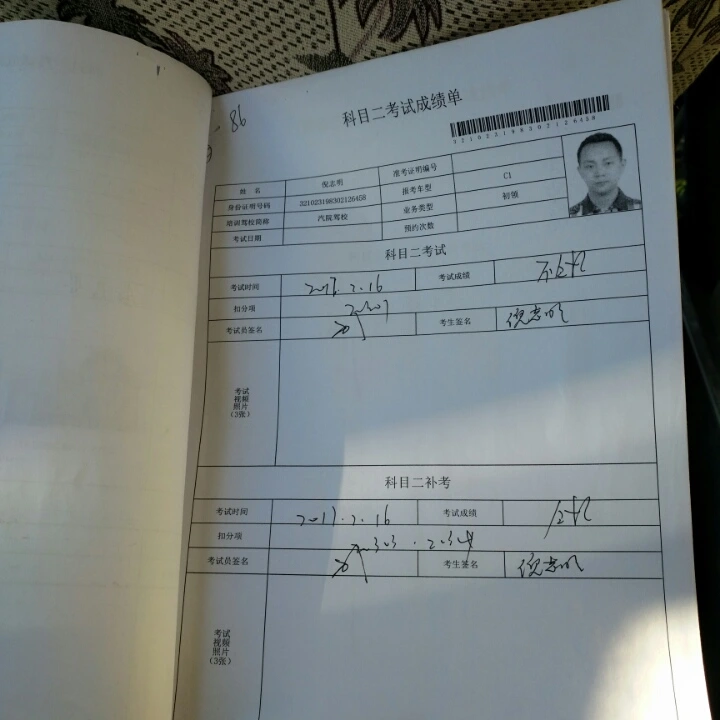 86
科目二考试成绩单
321023198302126458
姓 名 倪志明 准考证明编号
身份证明号码 321023198302126458 报考车型 C1
培训驾校简称 汽院驾校 业务类型 初领
考试日期 预约次数
科目二考试
考试时间 2017.2.16 考试成绩 不合格
扣分项 20307
考试员签名 考生签名 倪志明
考试
视频
照片
(3张)
科目二补考
考试时间 2017.2.16 考试成绩 合格
扣分项
考试员签名 考生签名 倪志明
考试
视频
照片
(3张)